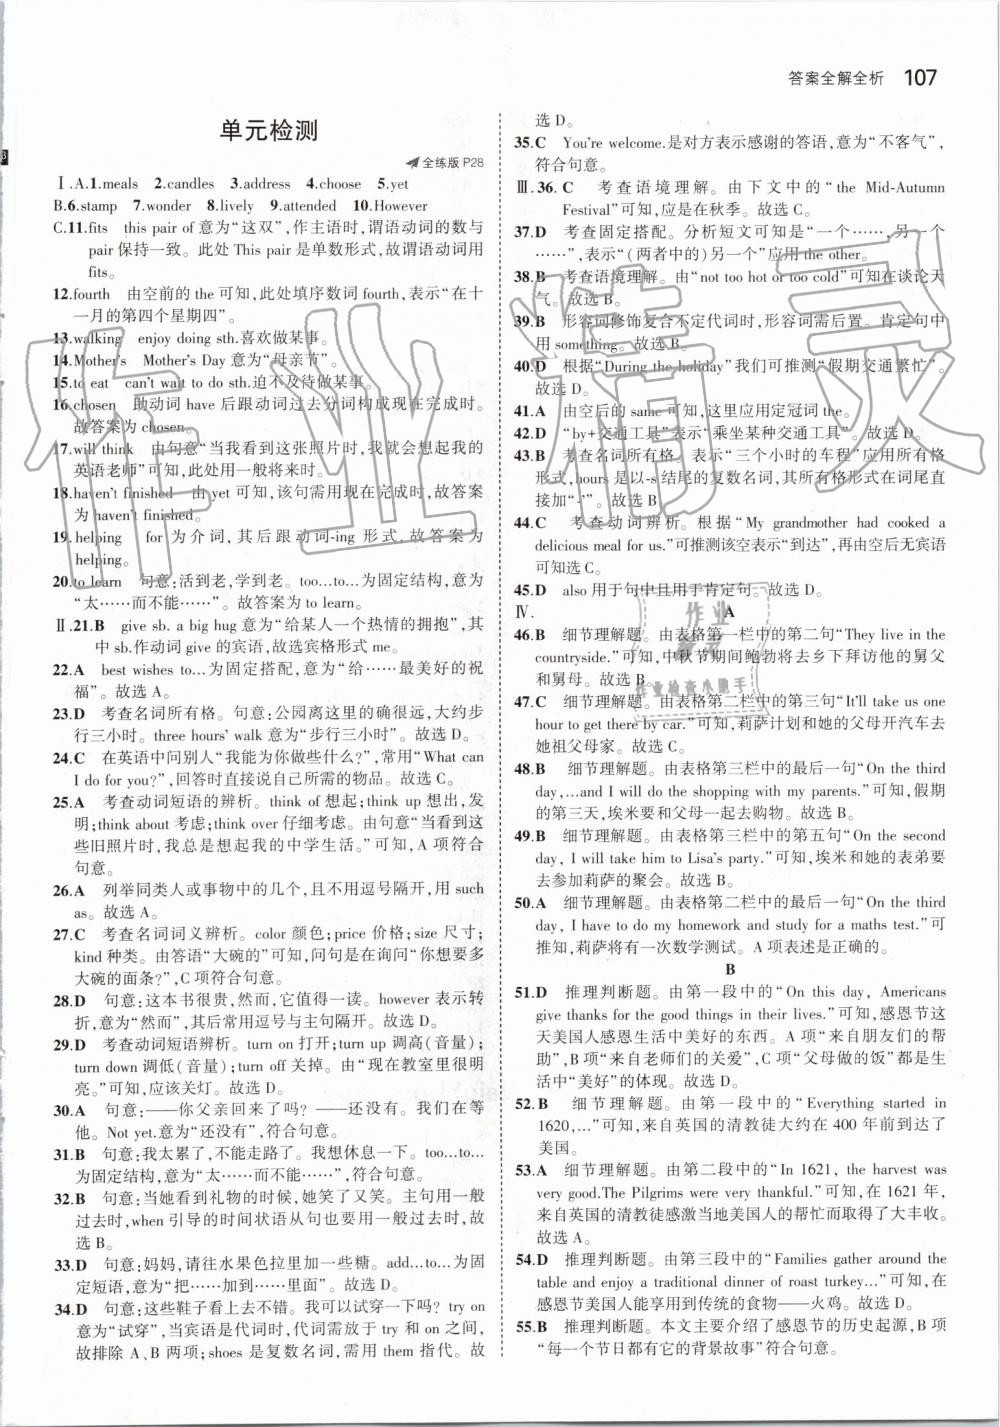 答案全解全析 107
单元检测
全练版 P28
Ⅰ.A.1.meals 2.candles 3.address 4.choose 5.yet
B.6.stamp 7.wonder 8.lively 9.attended 10.However
C.11.fits this pair of 意为“这双”,作主语时,谓语动词的数与
pair 保持一致。此处 This pair 是单数形式,故谓语动词用
fits。
12.fourth 由空前的 the 可知,此处填序数词 fourth,表示“在十
一月的第四个星期四”。
13.walking enjoy doing sth.喜欢做某事。
14.Mother's Mother's Day 意为“母亲节”。
15.to eat can't wait to do sth.迫不及待做某事。
16.chosen 助动词 have 后跟动词过去分词构成现在完成时。
故答案为 chosen。
17.will think 由句意“当我看到这张照片时,我就会想起我的
英语老师”可知,此处用一般将来时。
18.haven't finished 由 yet 可知,该句需用现在完成时,故答案
为 haven't finished。
19.helping for 为介词,其后跟动词-ing 形式,故答案为
helping。
20.to learn 句意:活到老,学到老。too…to…为固定结构,意为
“太……而不能……”。故答案为 to learn。
Ⅱ.21.B give sb. a big hug 意为“给某人一个热情的拥抱”,其
中 sb.作动词 give 的宾语,故选宾格形式 me。
22.A best wishes to…为固定搭配,意为“给……最美好的祝
福”。故选 A。
23.D 考查名词所有格。句意:公园离这里的确很远,大约步
行三小时。three hours' walk 意为“步行三小时”。故选 D。
24.C 在英语中问别人“我能为你做些什么?”,常用“What can
I do for you?”,回答时直接说自己所需的物品。故选 C。
25.A 考查动词短语的辨析。think of 想起;think up 想出,发
明;think about 考虑;think over 仔细考虑。由句意“当看到这
些旧照片时,我总是想起我的中学生活。”可知,A 项符合
句意。
26.A 列举同类人或事物中的几个,且不用逗号隔开,用 such
as。故选 A。
27.C 考查名词词义辨析。color 颜色;price 价格;size 尺寸;
kind 种类。由答语“大碗的”可知,问句是在问“你想要多
大碗的面条?”,C 项符合句意。
28.D 句意:这本书很贵,然而,它值得一读。however 表示转
折,意为“然而”,其后常用逗号与主句隔开。故选 D。
29.D 考查动词短语辨析。turn on 打开;turn up 调高(音量);
turn down 调低(音量);turn off 关掉。由“现在教室里很明
亮。”可知,应该关灯。故选 D。
30.A 句意:——你父亲回来了吗? ——还没有。我们在等
他。Not yet.意为“还没有”,符合句意。
31.B 句意:我太累了,不能走路了。我想休息一下。too…to…
为固定结构,意为“太……而不能……”,符合句意。
32.B 句意:当她看到礼物的时候,她笑了又笑。主句用一般
过去时,when 引导的时间状语从句也要用一般过去时,故
选 B。
33.D 句意:妈妈,请往水果色拉里加一些糖。add…to…为固
定短语,意为“把……加到……里面”。故选 D。
34.D 句意:这些鞋子看上去不错。我可以试穿一下吗? try on
意为“试穿”,当宾语是代词时,代词需放于 try 和 on 之间,
故排除 A、B 两项;shoes 是复数名词,需用 them 指代。故
选 D。
35.C You're welcome.是对方表示感谢的答语,意为“不客气”,
符合句意。
Ⅲ.36.C 考查语境理解。由下文中的“the Mid-Autumn
Festival”可知,应是在秋季。故选 C。
37.D 考查固定搭配。分析短文可知是“一个……,另一个
……”,表示“(两者中的)另一个”应用 the other。
38.B 考查语境理解。由“not too hot or too cold”可知在谈论天
气。故选 B。
39.B 形容词修饰复合不定代词时,形容词需后置。肯定句中
用 something。故选 B。
40.D 根据“During the holiday”我们可推测“假期交通繁忙”。
故选 D。
41.A 由空后的 same 可知,这里应用定冠词 the。
42.D “by+交通工具”表示“乘坐某种交通工具”。故选 D。
43.B 考查名词所有格。表示“三个小时的车程”应用所有格
形式,hours 是以-s 结尾的复数名词,其所有格形式在词尾直
接加“-'”。故选 B。
44.C 考查动词辨析。根据“My grandmother had cooked a
delicious meal for us.”可推测该空表示“到达”,再由空后无宾语
可知选 C。
45.D also 用于句中且用于肯定句。故选 D。
Ⅳ. A
46.B 细节理解题。由表格第一栏中的第二句“They live in the
countryside.”可知,中秋节期间鲍勃将去乡下拜访他的舅父
和舅母。故选 B。
47.C 细节理解题。由表格第二栏中的第三句“It'll take us one
hour to get there by car.”可知,莉萨计划和她的父母开汽车去
她祖父母家。故选 C。
48.B 细节理解题。由表格第三栏中的最后一句“On the third
day,…and I will do the shopping with my parents.”可知,假期
的第三天,埃米要和父母一起去购物。故选 B。
49.B 细节理解题。由表格第三栏中的第五句“On the second
day, I will take him to Lisa's party.”可知,埃米和她的表弟要
去参加莉萨的聚会。故选 B。
50.A 细节理解题。由表格第二栏中的最后一句“On the third
day, I have to do my homework and study for a maths test.”可
推知,莉萨将有一次数学测试。A 项表述是正确的。
B
51.D 推理判断题。由第一段中的“On this day, Americans
give thanks for the good things in their lives.”可知,感恩节这
天美国人感恩生活中美好的东西。A 项“来自朋友们的帮
助”、B 项“来自老师们的关爱”、C 项“父母做的饭”都是生活
中“美好”的体现。故选 D。
52.B 细节理解题。由第一段中的“Everything started in
1620,…”可知,来自英国的清教徒大约在 400 年前到达了
美国。
53.A 细节理解题。由第二段中的“In 1621, the harvest was
very good.The Pilgrims were very thankful.”可知,在 1621 年,
来自英国的清教徒感激当地美国人的帮忙而取得了大丰收。
故选 A。
54.D 推理判断题。由第三段中的“Families gather around the
table and enjoy a traditional dinner of roast turkey…”可知,在
感恩节美国人能享用到传统的食物——火鸡。故选 D。
55.B 推理判断题。本文主要介绍了感恩节的历史起源,B 项
“每一个节日都有它的背景故事”符合句意。
作业精灵
作业
作业检查小助手